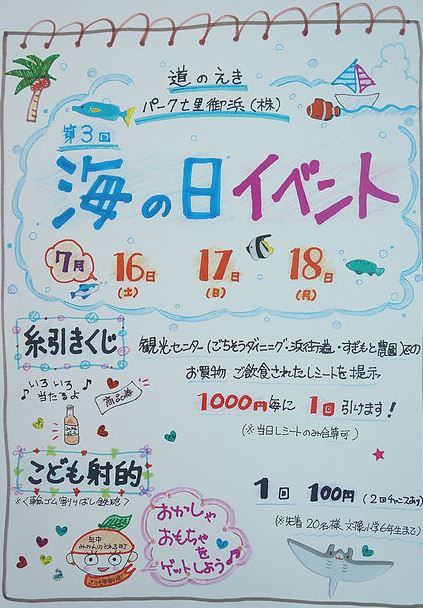 道のえき
パーク七里御浜(株)
第3回
海の日イベント
7月
16日
(土)
17日
(日)
18日
(月)
糸引きくじ
観光センター(ごちそうダイニング・浜街道・すぎもと農園)での
お買物 ご飲食されたレシートを提示
いろいろ♪
♪当たるよ
商品券
1000円毎に 1回引けます!
(※当日レシートのみ合算可)
こども射的
※<輪ゴム割りばし鉄砲>
おかしゃ
おもちゃを
ゲットしよう♪
1回 100円 (2回チャンスあり)
(※先着20名様、小学6年生まで)
年中
みかんのとれる町